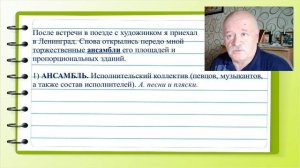 После встречи в поезде с художником я приехал
в Ленинград. Снова открылись передо мной
торжественные ансамбли его площадей и
пропорциональных зданий.
1) АНСАМБЛЬ. Исполнительский коллектив (певцов, музыкантов,
а также состав исполнителей). А. песни и пляски.